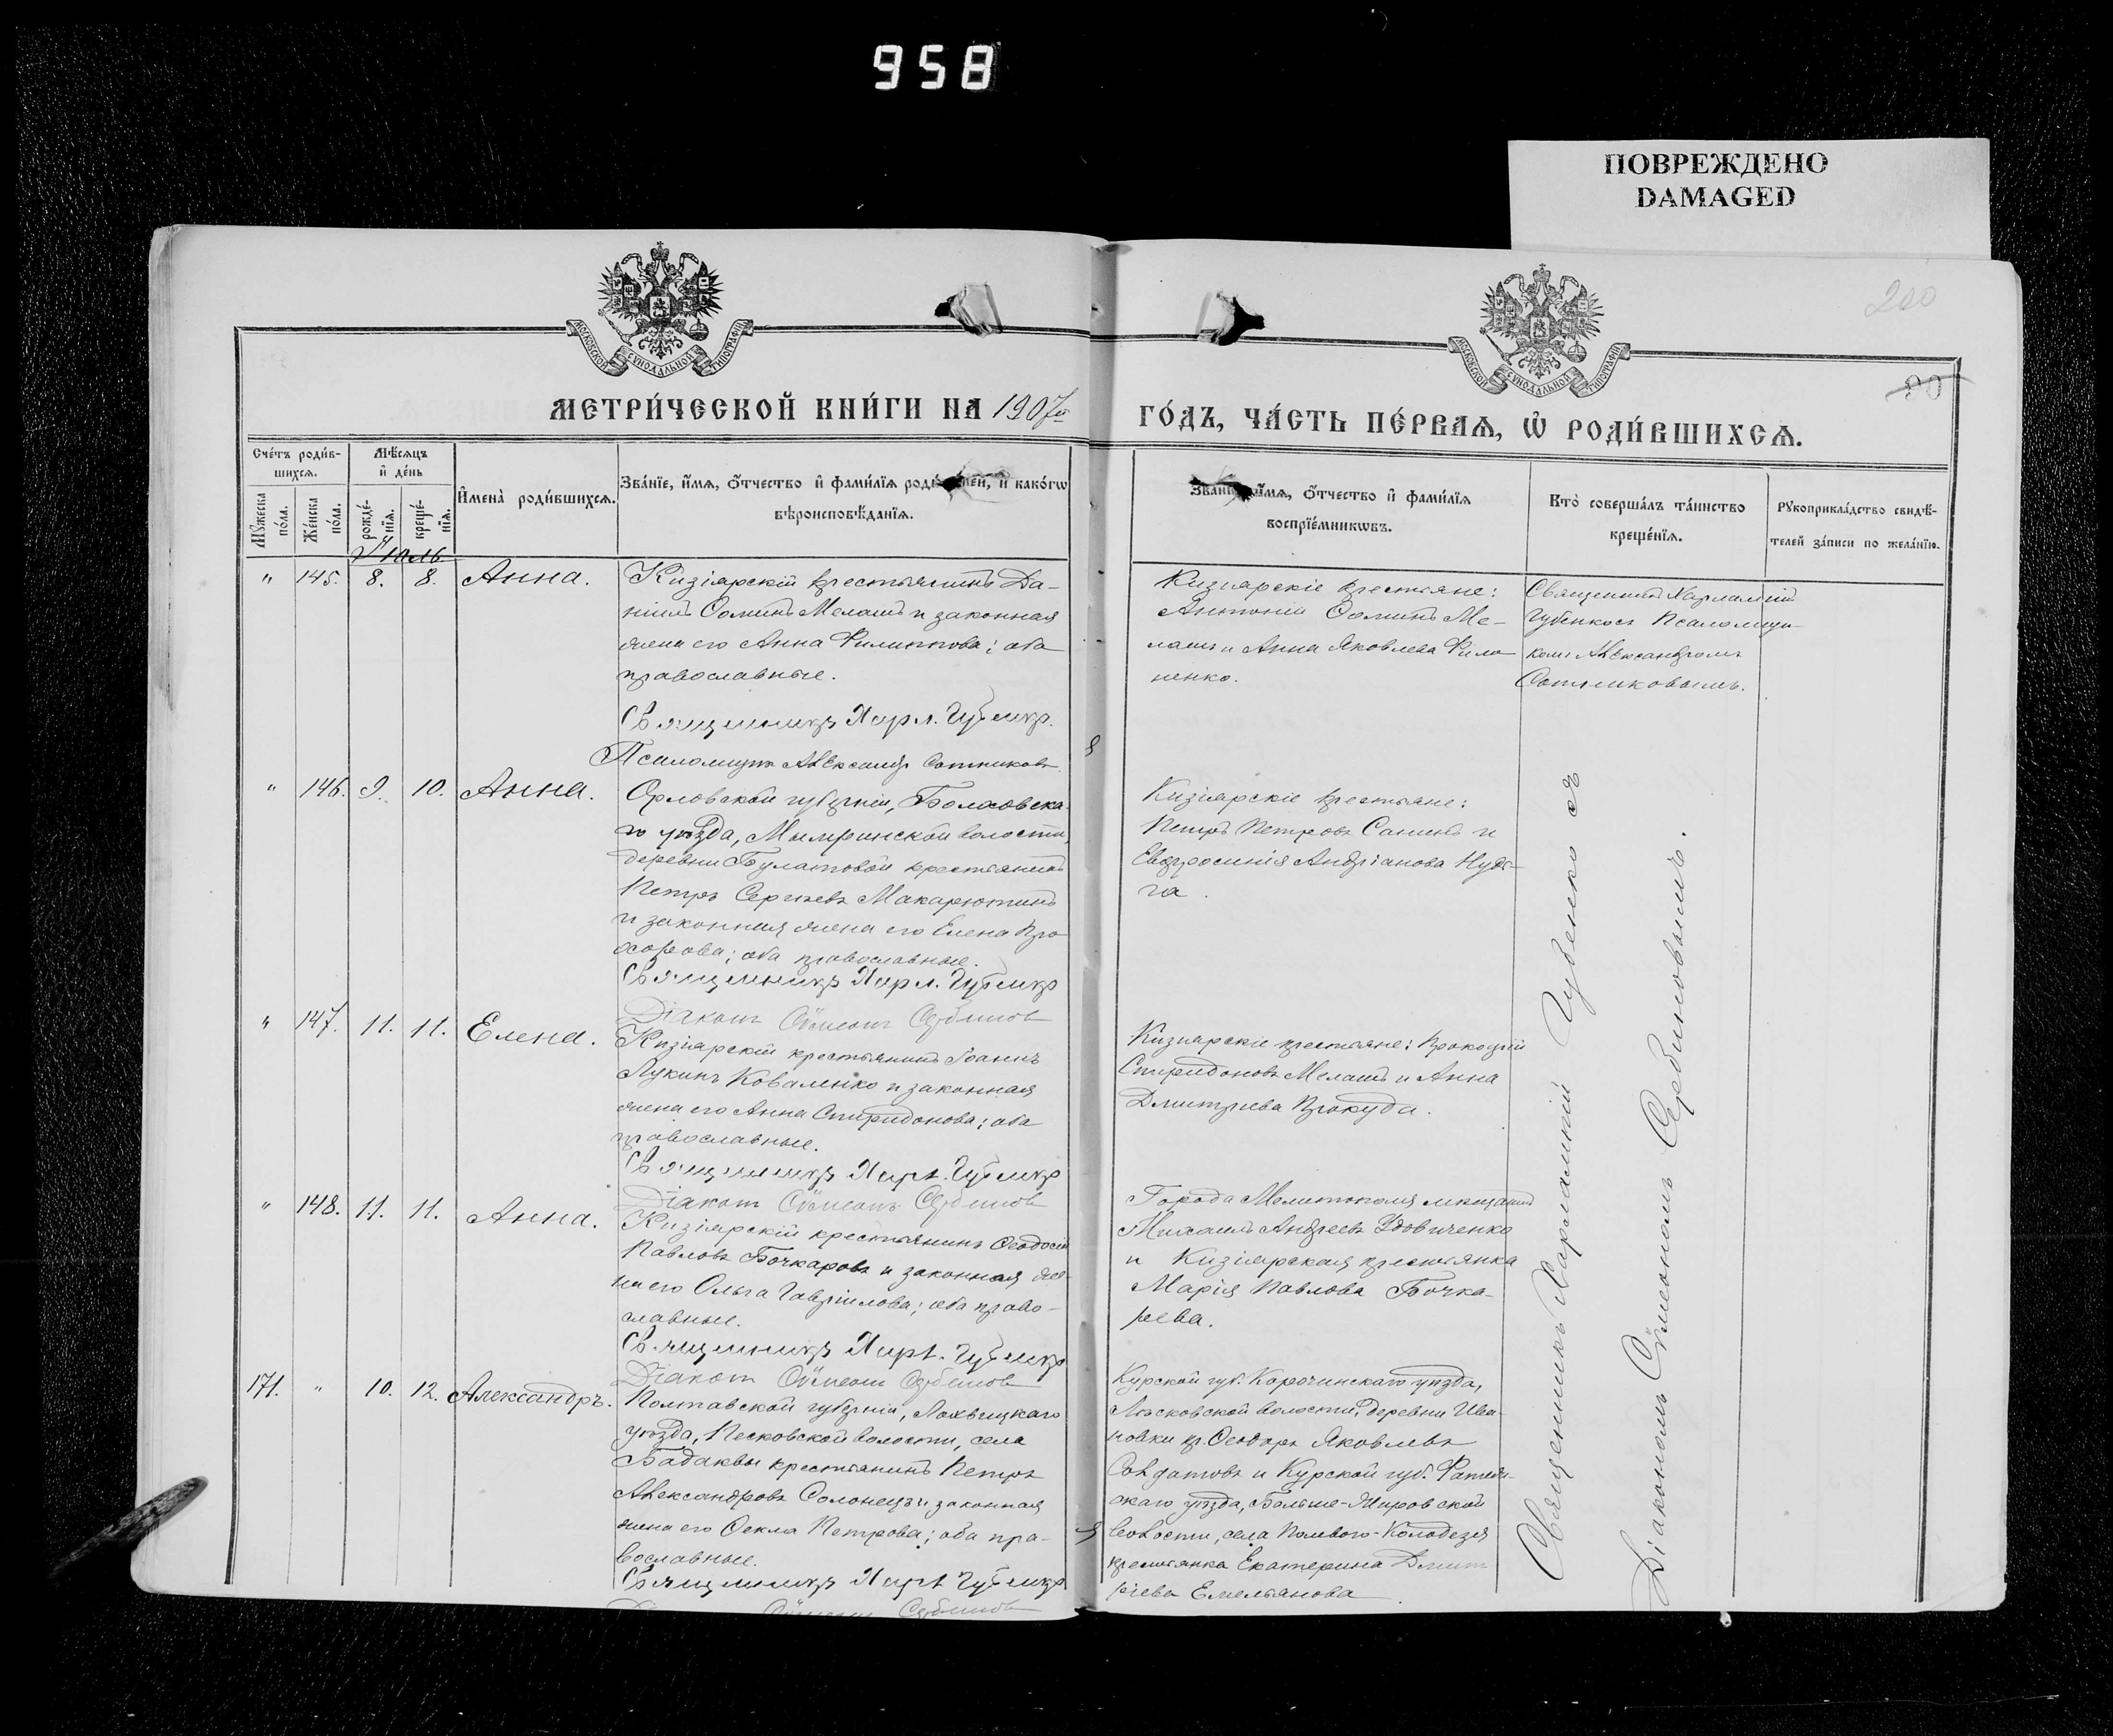 958
ПОВРЕЖДЕНО
DAMAGED
МОСКОВСКОЙ СУНОДАЛЬНОЙ ТИПОГРАФІИ
МОСКОВСКОЙ СУНОДАЛЬНОЙ ТИПОГРАФІИ
200
90
МЕТРИ́ЧЕСКОЙ КНИ́ГИ НА 1907й
ГО́ДЪ, ЧА́СТЬ ПЕ́РВАѦ, Ѡ҆ РОДИ́ВШИХСѦ.
Сче́тъ роди́в-
шихсѧ.
Мѣ́сѧцъ
и҆ де́нь
Мꙋжеска по́ла.
Же́нска по́ла.
рожде́-
нїѧ.
креще́-
нїѧ.
И҆мена̀ роди́вшихсѧ.
Зва́нїе, и҆́мѧ, ѻ҆́тчество и҆ фами́лїѧ роди́телей, и҆ како́гѡ
вѣроисповѣ́данїѧ.
Зва́нїе, и҆́мѧ, ѻ҆́тчество и҆ фами́лїѧ
воспрїе́мникѡвъ.
Кто̀ соверша́лъ та́инство
креще́нїѧ.
Рꙋкоприкла́дство свидѣ́-
телей за́писи по жела́нїю.
Іюль
" 145. 8. 8. Анна.
Кизіярскій крестьянинъ Да-
ніилъ Ѳоминъ Мелашъ и законная
жена его Анна Филиппова; оба
православные.
Священникъ Харл. Губенко.
Псаломщикъ Александр Сотников
Кизіярскіе крестьяне:
Антоній Ѳоминъ Ме-
лашъ и Анна Яковлева Фило-
ненко.
Священникъ Харлампій
Губенко съ Псаломщи-
комъ Александромъ
Сотниковымъ.
" 146. 9. 10. Анна.
Орловской губерніи, Болховска-
го уѣзда,
волости,
деревни Булатовой крестьянинъ
Петръ Сергѣевъ Макарютинъ
и законная жена его Елена Про-
хорова; оба православные.
Священникъ Харл. Губенко
Діаконъ Сѵмеонъ Сербинов
Кизіярскіе крестьяне:
Петръ Петровъ Санинъ и
Евфросинія Андріанова Нудь-
га.
" 147. 11. 11. Елена.
Кизіярскій крестьянинъ Іоаннъ
Лукинъ Коваленко и законная
жена его Анна Спиридонова; оба
православные.
Священникъ Харл. Губенко
Діаконъ Сѵмеонъ Сербинов
Кизіярскіе крестьяне: Прокопій
Спиридоновъ Мелашъ и Анна
Дмитріева Прокуда.
" 148. 11. 11. Анна.
Кизіярскій крестьянинъ Ѳеодосій
Павловъ Бочкаровъ и законная же-
на его Ольга Гавріилова; оба право-
славные.
Священникъ Харл. Губенко
Діаконъ Сѵмеонъ Сербинов
Города Мелитополя мѣщанинъ
Михаилъ Андреевъ Удовиченко
и Кизіярская крестьянка
Марія Павлова Бочка-
рева.
171. " 10. 12. Александръ.
Полтавской губерніи, Лохвицкаго
уѣзда, Песковской волости, села
Бодаквы крестьянинъ Петръ
Александровъ Солонецъ и законная
жена его Ѳекла Петрова; оба пра-
вославные.
Священникъ Харл. Губенко
Сѵмеонъ Сербинов
Курской губ. Корочинскаго уѣзда,
волости, деревни Ива-
новки кр. Ѳеодоръ Яковлевъ
Солдатовъ и Курской губ. Фатеж-
скаго уѣзда, Больше-Жировской
волости, села Полевого-Колодезя
крестьянка Екатерина Дмит-
ріева Емельянова.
Священникъ Харлампій Губенко съ
Діакономъ Сѵмеономъ Сербиновымъ.